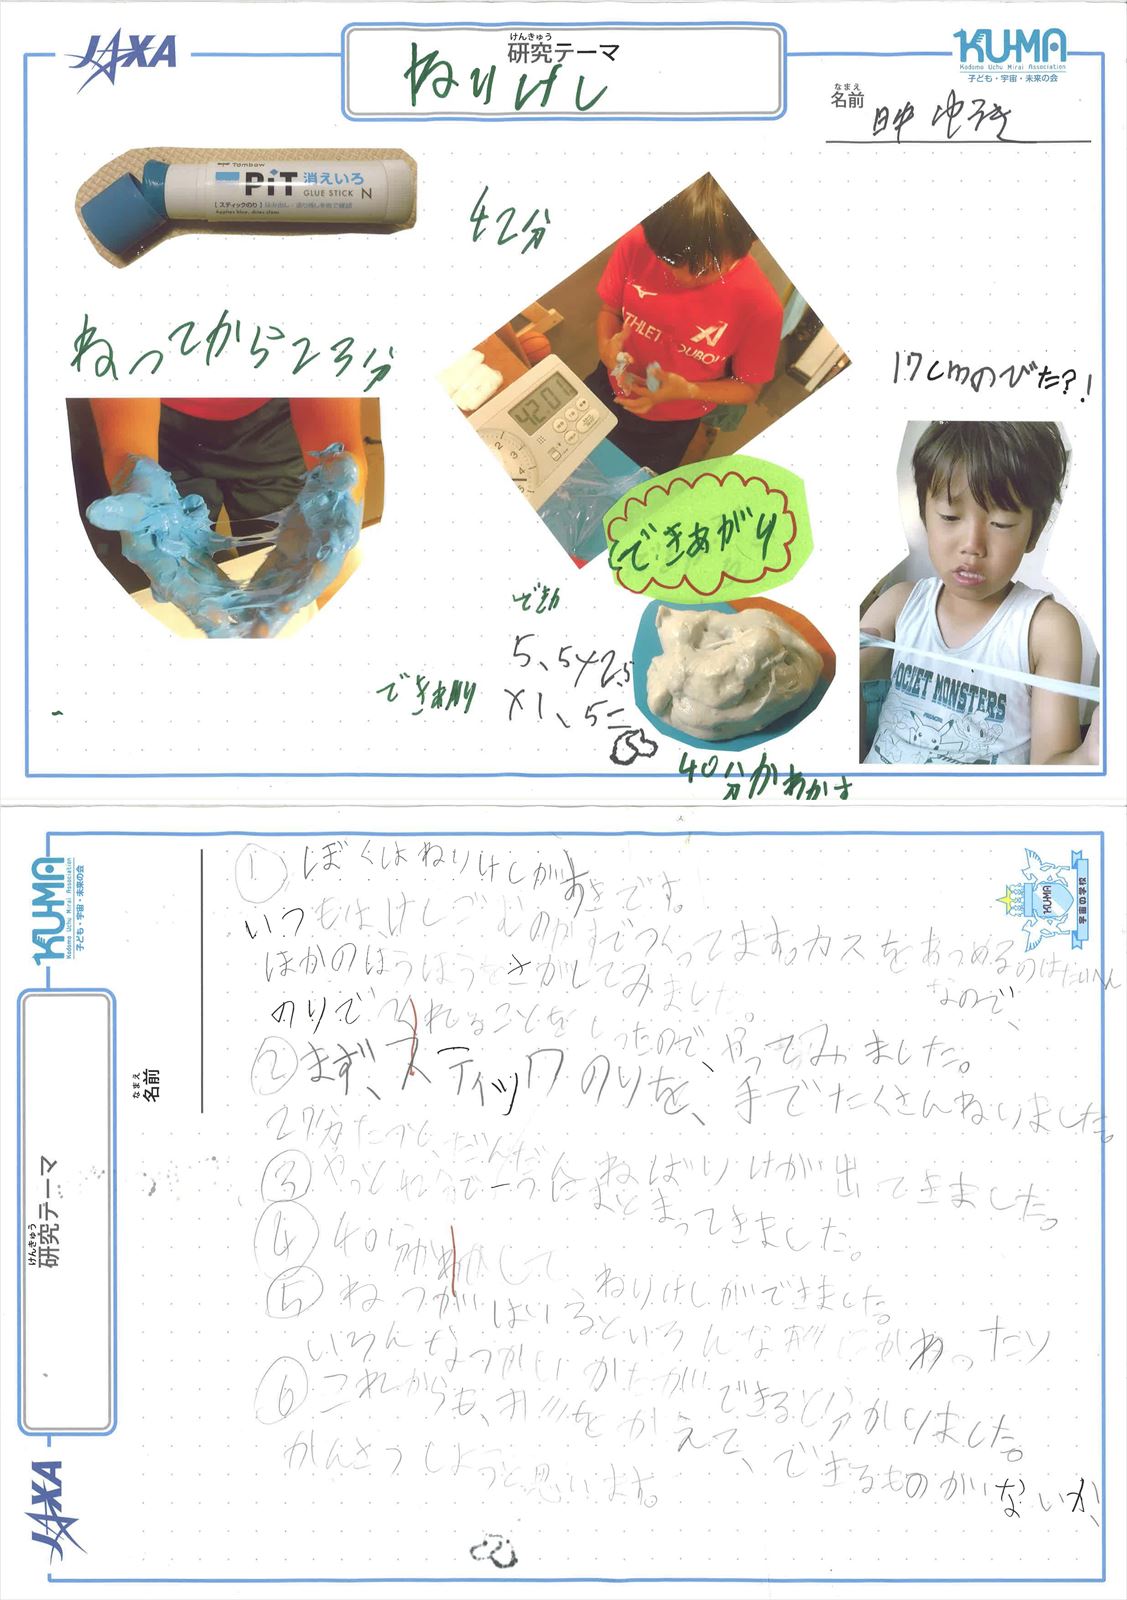 JAXA
けんきゅう
研究テーマ
ねりけし
KU-MA
Kodomo Uchu Mirai Association
子ども・宇宙・未来の会
なまえ
名前
Tombow
PiT 消えいろ
GLUE STICK N
42分
ねってから23分
42.01
17cmのびた?!
できあがり
でき
5、5×2.5
×1、5=
できあがり
40分かわかす
SOCIET MONSTERS
KU-MA
Kodomo Uchu Mirai Association
子ども・宇宙・未来の会
宇宙の学校
なまえ
名前
けんきゅう
研究テーマ
JAXA
① ぼくはねりけしがすきです。
いつもはけしゴムのカスでつくってます。カスをあつめるのはたいへん
なので、
ほかのほうほうをさがしてみました。
のりで つくれることをしったので、やってみました。
② まず、スティックのりを、手でたくさんねりました。
27分たつと、だんだんねばりけが出てきました。
③ やっと まとまってきました。
④ 40分かわかして
ねりけしができました。
⑤ ねつがはいるといろんな形にかわったり
いろんなつかいかたができると分かりました。
⑥ これからも、 をかえて、できるものがないか、
かんさつしようと思います。